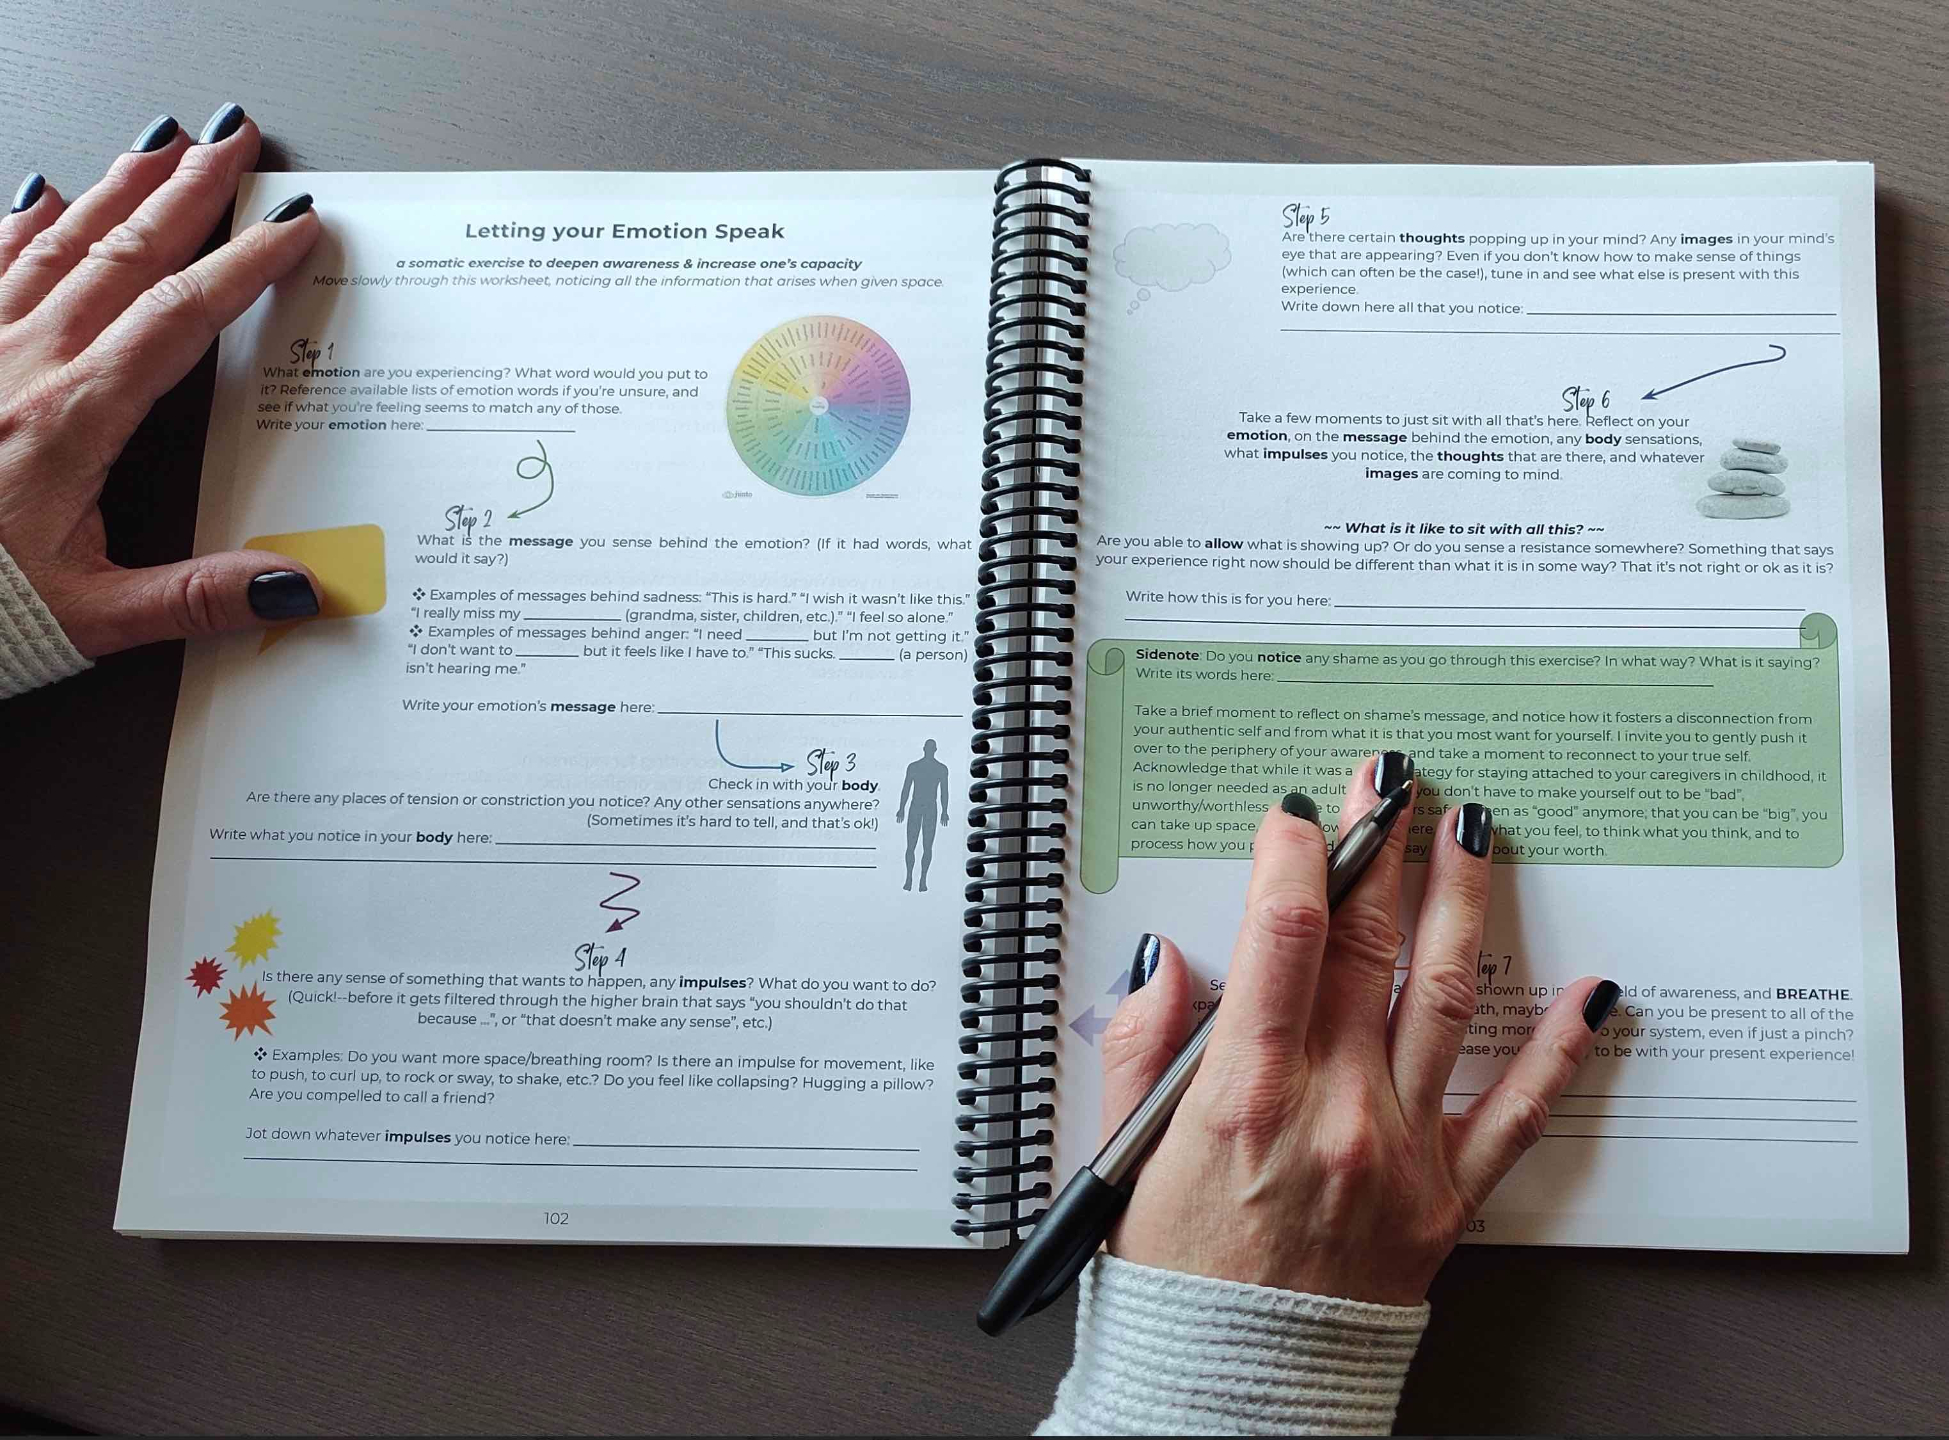 Letting your Emotion Speak
a somatic exercise to deepen awareness & increase one's capacity
Move slowly through this worksheet, noticing all the information that arises when given space.
Step 1
What emotion are you experiencing? What word would you put to
it? Reference available lists of emotion words if you're unsure, and
see if what you're feeling seems to match any of those.
Write your emotion here:
Step 2
What is the message you sense behind the emotion? (If it had words, what
would it say?)
❖ Examples of messages behind sadness: "This is hard." "I wish it wasn't like this."
"I really miss my ____________ (grandma, sister, children, etc.)." "I feel so alone."
❖ Examples of messages behind anger: "I need ________ but I'm not getting it."
"I don't want to ________ but it feels like I have to." "This sucks. _______ (a person)
isn't hearing me."
Write your emotion's message here:
Step 3
Check in with your body.
Are there any places of tension or constriction you notice? Any other sensations anywhere?
(Sometimes it's hard to tell, and that's ok!)
Write what you notice in your body here:
Step 4
Is there any sense of something that wants to happen, any impulses? What do you want to do?
(Quick!--before it gets filtered through the higher brain that says "you shouldn't do that
because ...", or "that doesn't make any sense", etc.)
❖ Examples: Do you want more space/breathing room? Is there an impulse for movement, like
to push, to curl up, to rock or sway, to shake, etc.? Do you feel like collapsing? Hugging a pillow?
Are you compelled to call a friend?
Jot down whatever impulses you notice here:
102
Step 5
Are there certain thoughts popping up in your mind? Any images in your mind's
eye that are appearing? Even if you don't know how to make sense of things
(which can often be the case!), tune in and see what else is present with this
experience.
Write down here all that you notice:
Step 6
Take a few moments to just sit with all that's here. Reflect on your
emotion, on the message behind the emotion, any body sensations,
what impulses you notice, the thoughts that are there, and whatever
images are coming to mind.
~~ What is it like to sit with all this? ~~
Are you able to allow what is showing up? Or do you sense a resistance somewhere? Something that says
your experience right now should be different than what it is in some way? That it's not right or ok as it is?
Write how this is for you here:
Sidenote: Do you notice any shame as you go through this exercise? In what way? What is it saying?
Write its words here:
Take a brief moment to reflect on shame's message, and notice how it fosters a disconnection from
your authentic self and from what it is that you most want for yourself. I invite you to gently push it
over to the periphery of your awareness and take a moment to reconnect to your true self.
Acknowledge that while it was a for staying attached to your caregivers in childhood, it
is no longer needed as an adult you don't have to make yourself out to be "bad",
unworthy/worthless to as "good" anymore; that you can be "big", you
can take up space, what you feel, to think what you think, and to
process how you say about your worth.
7
shown up in of awareness, and BREATHE.
maybe Can you be present to all of the
more your system, even if just a pinch?
you to be with your present experience!